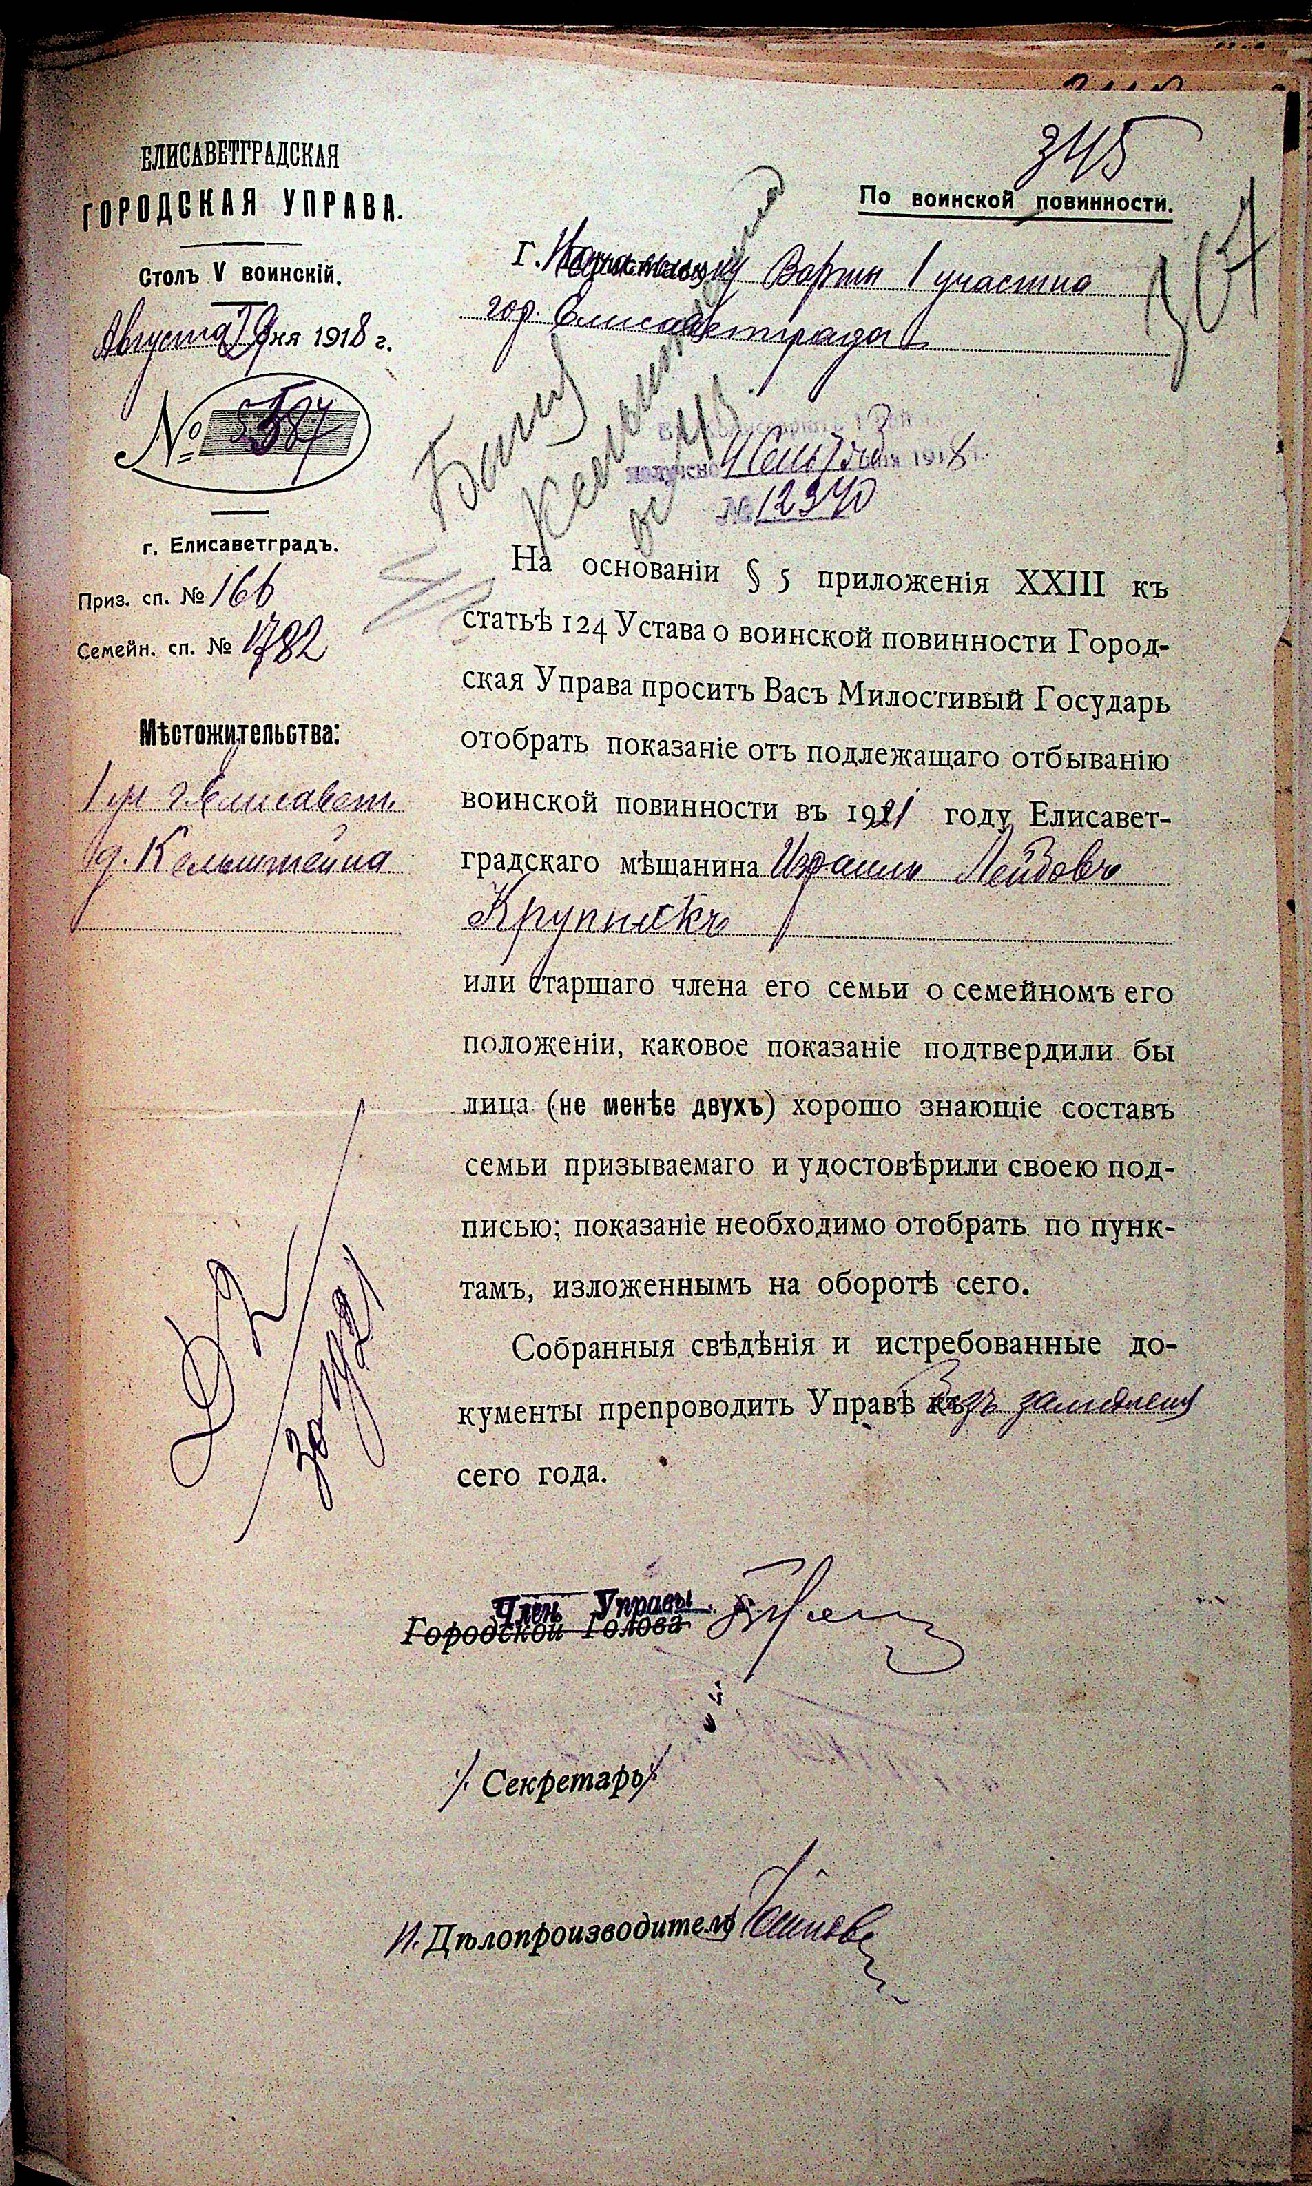 345
По воинской повинности.
367
ЕЛИСАВЕТГРАДСКАЯ
ГОРОДСКАЯ УПРАВА.
Столъ V воинскій.
Августа 29 дня 1918 г.
№ 5587
г. Елисаветградъ.
Приз. сп. № 166
Семейн. сп. № 1782
Мѣстожительства:
1 уч г Елисавет.
д. Кельштейна
Г. Начальнику Варты 1 участка
гор. Елисаветграда
получено 4 Сент дня 1918 г.
№ 12340
На основаніи § 5 приложенія XXIII къ
статьѣ 124 Устава о воинской повинности Город-
ская Управа проситъ Васъ Милостивый Государь
отобрать показаніе отъ подлежащаго отбыванію
воинской повинности въ 1921 году Елисавет-
градскаго мѣщанина Израиль Лейбовъ
Крупникъ
или старшаго члена его семьи о семейномъ его
положеніи, каковое показаніе подтвердили бы
лица (не менѣе двухъ) хорошо знающіе составъ
семьи призываемаго и удостовѣрили своею под-
писью; показаніе необходимо отобрать по пунк-
тамъ, изложеннымъ на оборотѣ сего.
Собранныя свѣдѣнія и истребованные до-
кументы препроводить Управѣ къ Безъ замедлен
сего года.
Член Управы
Городской Голова
Секретарь
И. Дѣлопроизводитель